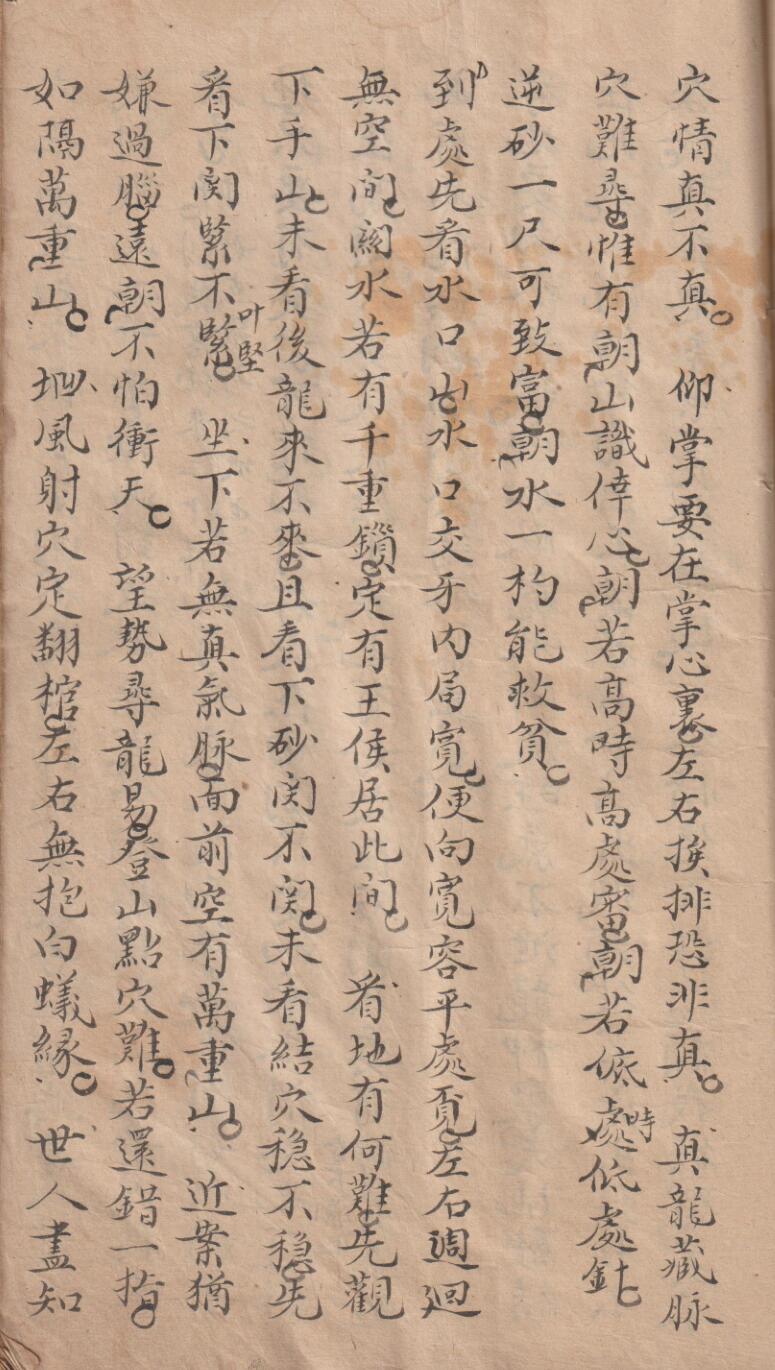 穴情真不真。仰掌要在掌心裏。左右挨排恐非真。真龍藏脉
穴難尋。惟有朝山識倖心。朝若高時高處審。朝若低處時低處針。
逆砂一尺可致富。朝水一杓能救貧。
到處先看水口山。水口交牙内局寬。便向寬容平處覓。左右週迴
無空間。闕水若有千重鎖。定有王侯居此间。看地有何難。先觀
下手山。未看後龍來不來。且看下砂関不関。未看結穴穏不穏。先
看下関緊不緊叶堅。坐下若無真氣脉。面前空有萬重山。近案猶
嫌過腦。遠朝不怕衝天。望勢尋龍易。登山點穴難。若還錯一指。
如隔萬重山。坳風射穴定翻棺。左右無抱白蟻緣。世人盡知